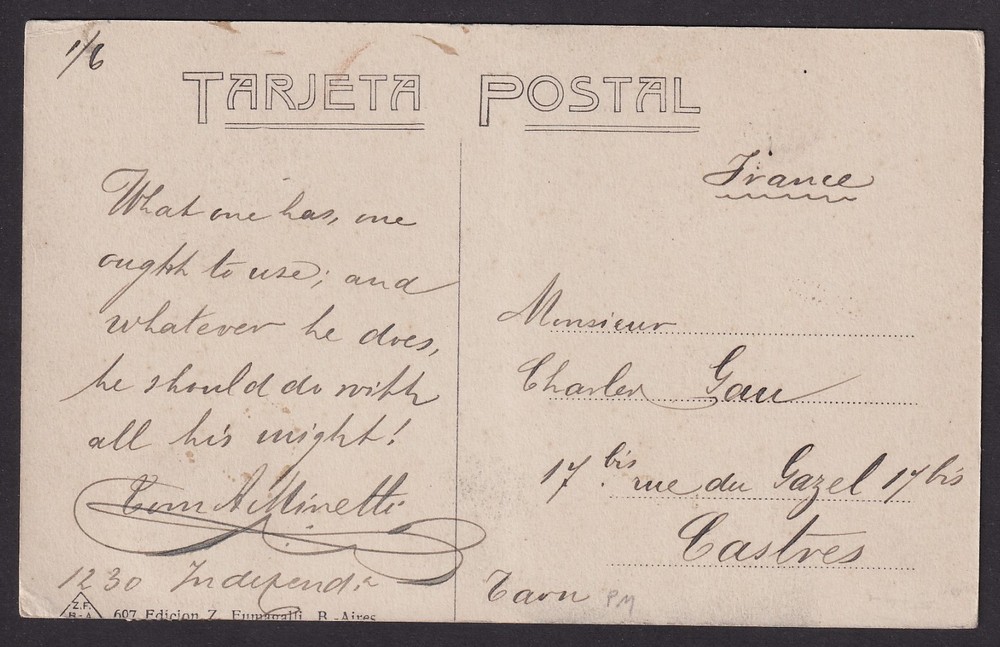 1/6
TARJETA POSTAL
What one has, one
ought to use; and
whatever he does,
he should do with
all his might!
Tom A Minetti
1230 Independ.a
Z.F.
B-A
697 Edicion Z. Fumagalli, B.-Aires
France
Monsieur
Charles Gau
17 bis rue du Gazel 17 bis
Castres
Tarn
PM